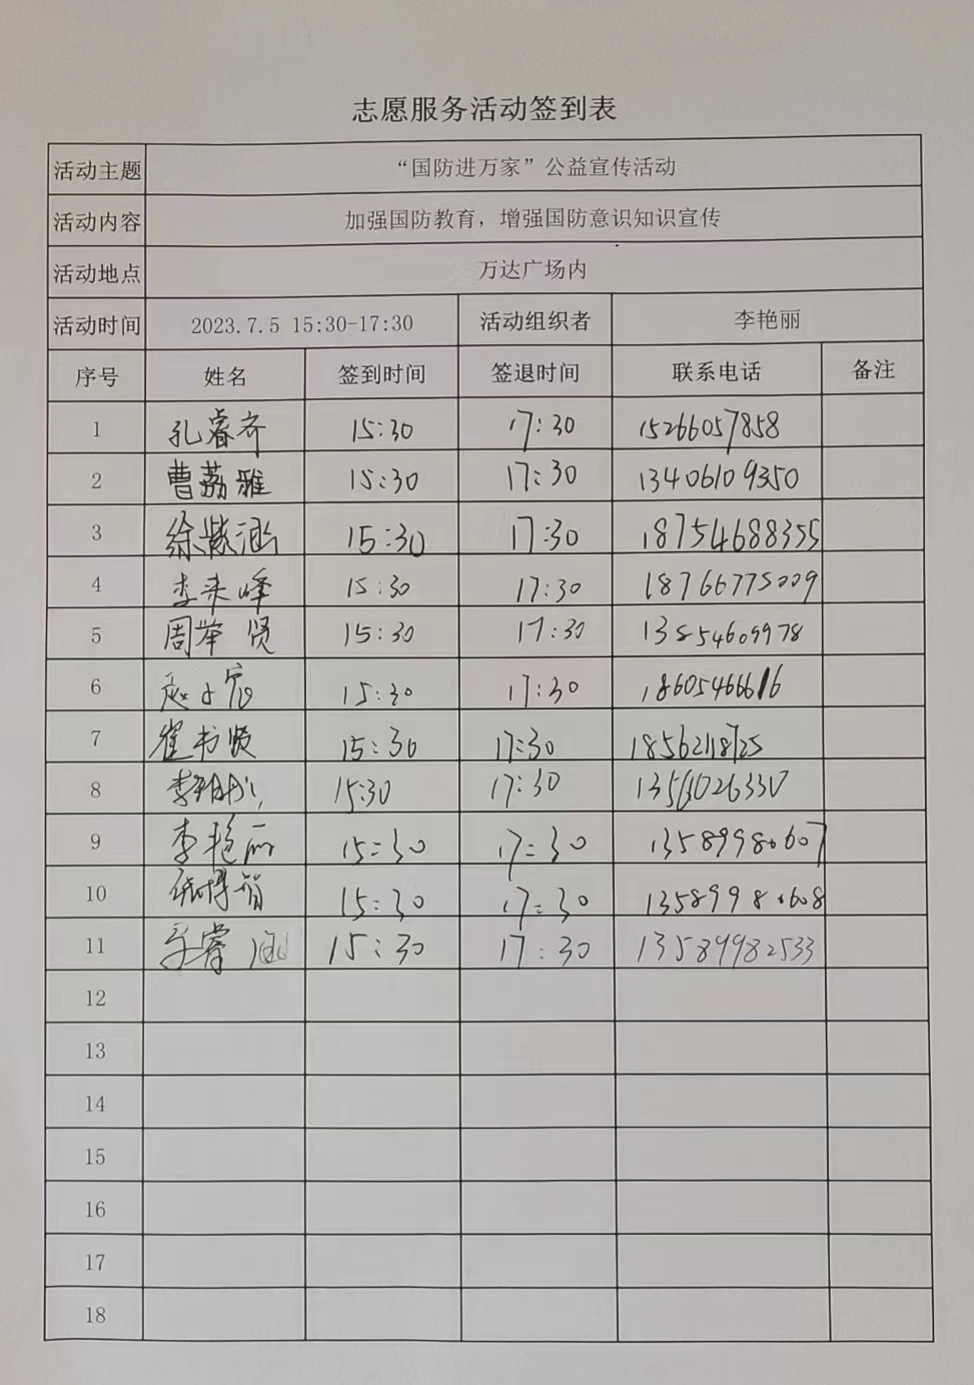 志愿服务活动签到表
活动主题 “国防进万家”公益宣传活动
活动内容 加强国防教育，增强国防意识知识宣传
活动地点 万达广场内
活动时间 2023.7.5 15:30-17:30 活动组织者 李艳丽
序号 姓名 签到时间 签退时间 联系电话 备注
1 孔睿齐 15:30 17:30 15266057858
2 曹荔雅 15:30 17:30 13406109350
3 徐紫涵 15:30 17:30 18754688355
4 李来峰 15:30 17:30 18766775009
5 周举贤 15:30 17:30 13854609978
6 15:30 17:30 18605466616
7 崔书贤 15:30 17:30 18562118725
8 15:30 17:30
9 李艳丽 15:30 17:30 13589980607
10 15:30 17:30 13589980608
11 15:30 17:30 13589982533
12
13
14
15
16
17
18